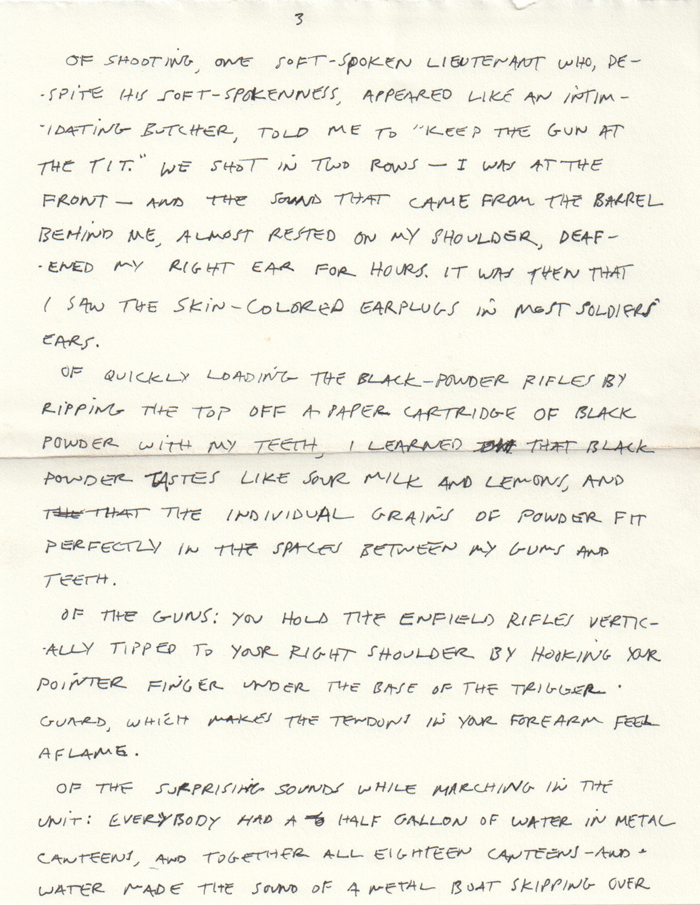 3
OF SHOOTING, ONE SOFT-SPOKEN LIEUTENANT WHO, DE-
-SPITE HIS SOFT-SPOKENNESS, APPEARED LIKE AN INTIM-
-IDATING BUTCHER, TOLD ME TO "KEEP THE GUN AT
THE TIT." WE SHOT IN TWO ROWS — I WAS AT THE
FRONT — AND THE SOUND THAT CAME FROM THE BARREL
BEHIND ME, ALMOST RESTED ON MY SHOULDER, DEAF-
-ENED MY RIGHT EAR FOR HOURS. IT WAS THEN THAT
I SAW THE SKIN-COLORED EARPLUGS IN MOST SOLDIERS'
EARS.
OF QUICKLY LOADING THE BLACK-POWDER RIFLES BY
RIPPING THE TOP OFF A PAPER CARTRIDGE OF BLACK
POWDER WITH MY TEETH, I LEARNED THAT BLACK
POWDER TASTES LIKE SOUR MILK AND LEMONS, AND
THE THAT THE INDIVIDUAL GRAINS OF POWDER FIT
PERFECTLY IN THE SPACES BETWEEN MY GUMS AND
TEETH.
OF THE GUNS: YOU HOLD THE ENFIELD RIFLES VERTIC-
-ALLY TIPPED TO YOUR RIGHT SHOULDER BY HOOKING YOUR
POINTER FINGER UNDER THE BASE OF THE TRIGGER -
GUARD, WHICH MAKES THE TENDONS IN YOUR FOREARM FEEL
AFLAME.
OF THE SURPRISING SOUNDS WHILE MARCHING IN THE
UNIT: EVERYBODY HAD A HALF GALLON OF WATER IN METAL
CANTEENS, AND TOGETHER ALL EIGHTEEN CANTEENS-AND-
WATER MADE THE SOUND OF A METAL BOAT SKIPPING OVER